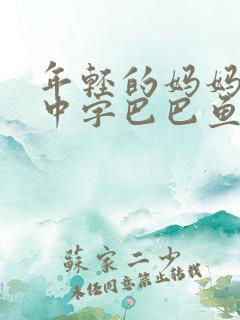 年轻的妈妈
中字巴巴鱼
蘇家二少
未经同意禁止转载